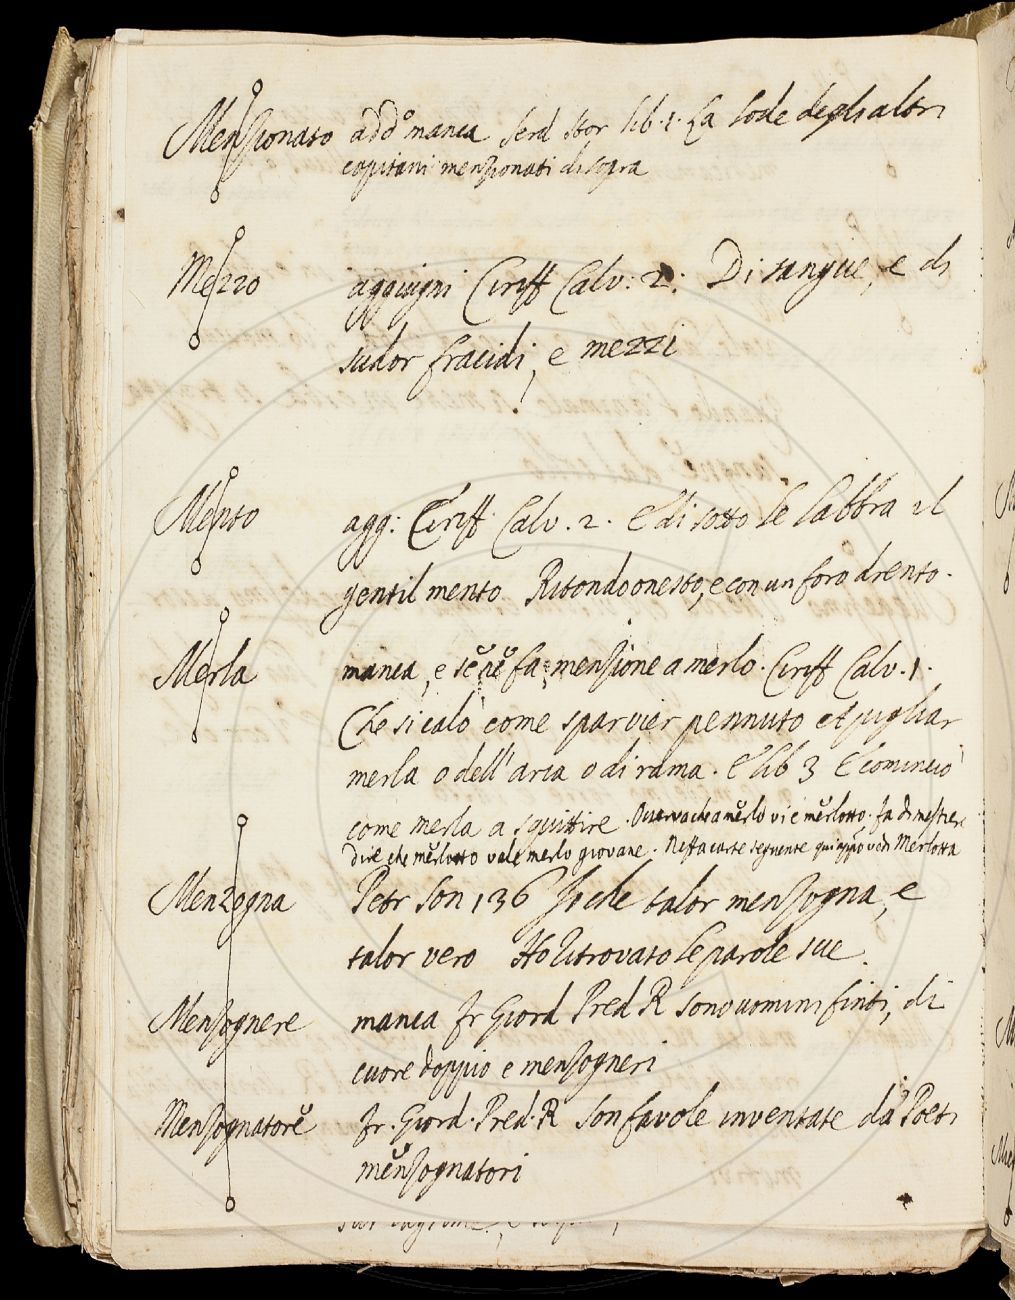 Menzionato add.º manca Serd Stor lib. 1. La lode degli altri
capitani menzionati di sopra
Mezzo aggiugni Ciriff Calv: 2: Di sangue, e di
sudor fracidi, e mezzi
Mento agg: Ciriff Calv. 2. E di sotto le labbra il
gentil mento Ritondo onesto, e con un foro drento.
Merla manca, e se ne fa menzione a merlo. Ciriff Calv. 1.
Che si calò come sparvier pennuto A pigliar
merla o dell' aria o di rama. E lib 3 E cominciò
come merla a squittire. Osserva che a merlo vi è merlotto. fa di mestiere
dire che merlotto vale merlo giovane. Nella carte seguente vedi Merlotta
Menzogna Petr Son 136 Fo che talor menzogna, e
talor vero Ho ritrovato le parole sue.
Menzognere manca Fr Giord Pred R sono uomini finti, di
cuore doppio e menzogneri
Menzognatore Fr. Giord. Pred. R Son favole inventate da' Poeti
menzognatori